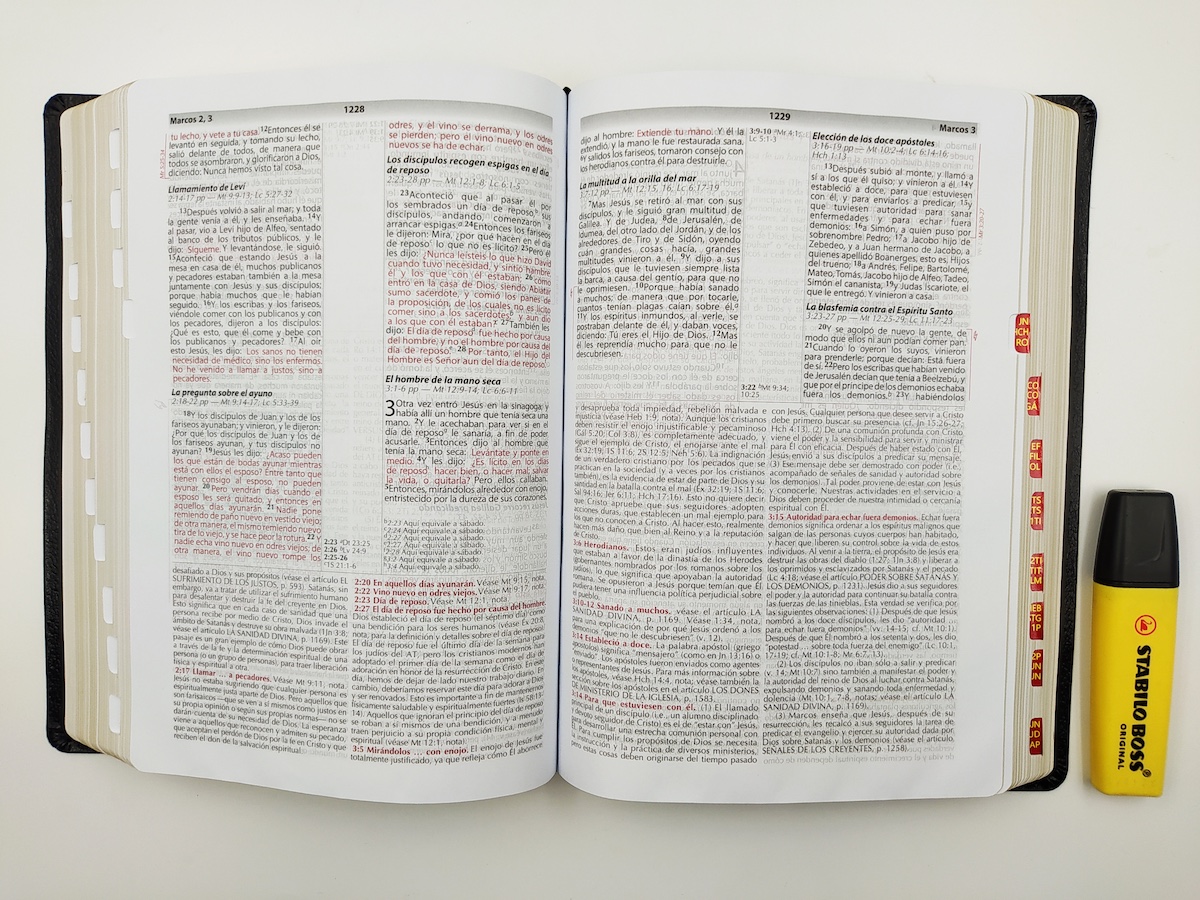 Marcos 2, 3
1228
tu lecho, y vete a tu casa. 12Entonces él se
levantó en seguida, y tomando su lecho,
salió delante de todos, de manera que
todos se asombraron, y glorificaron a Dios,
diciendo: Nunca hemos visto tal cosa.
Llamamiento de Leví
2:14-17 pp — Mt 9:9-13; Lc 5:27-32
13Después volvió a salir al mar; y toda
la gente venía a él, y les enseñaba. 14Y
al pasar, vio a Leví hijo de Alfeo, sentado
al banco de los tributos públicos, y le
dijo: Sígueme. Y levantándose, le siguió.
15Aconteció que estando Jesús a la
mesa en casa de él, muchos publicanos
y pecadores estaban también a la mesa
juntamente con Jesús y sus discípulos;
porque había muchos que le habían
seguido. 16Y los escribas y los fariseos,
viéndole comer con los publicanos y con
los pecadores, dijeron a los discípulos:
¿Qué es esto, que él come y bebe con
los publicanos y pecadores? 17Al oír
esto Jesús, les dijo: Los sanos no tienen
necesidad de médico, sino los enfermos.
No he venido a llamar a justos, sino a
pecadores.
La pregunta sobre el ayuno
2:18-22 pp — Mt 9:14-17; Lc 5:33-39
18Y los discípulos de Juan y los de los
fariseos ayunaban; y vinieron, y le dijeron:
¿Por qué los discípulos de Juan y los de
los fariseos ayunan, y tus discípulos no
ayunan? 19Jesús les dijo: ¿Acaso pueden
los que están de bodas ayunar mientras
está con ellos el esposo? Entre tanto que
tienen consigo al esposo, no pueden
ayunar. 20Pero vendrán días cuando el
esposo les será quitado, y entonces en
aquellos días ayunarán. 21Nadie pone
remiendo de paño nuevo en vestido viejo;
de otra manera, el mismo remiendo nuevo
tira de lo viejo, y se hace peor la rotura. 22Y
nadie echa vino nuevo en odres viejos; de
otra manera, el vino nuevo rompe los
2:23 Dt 23:25
2:26 Lv 24:9
1S 21:1-6
2:25-26
odres, y el vino se derrama, y los odres
se pierden; pero el vino nuevo en odres
nuevos se ha de echar.
Los discípulos recogen espigas en el día
de reposo
2:23-28 pp — Mt 12:1-8; Lc 6:1-5
23Aconteció que al pasar él por
los sembrados un día de reposo, sus
discípulos, andando, comenzaron a
arrancar espigas. 24Entonces los fariseos
le dijeron: Mira, ¿por qué hacen en el día
de reposo lo que no es lícito? 25Pero él
les dijo: ¿Nunca leísteis lo que hizo David
cuando tuvo necesidad, y sintió hambre,
él y los que con él estaban; 26cómo
entró en la casa de Dios, siendo Abiatar
sumo sacerdote, y comió los panes de
la proposición, de los cuales no es lícito
comer sino a los sacerdotes, y aun dio
a los que con él estaban? 27También les
dijo: El día de reposo fue hecho por causa
del hombre, y no el hombre por causa del
día de reposo. 28Por tanto, el Hijo del
Hombre es Señor aun del día de reposo.
El hombre de la mano seca
3:1-6 pp — Mt 12:9-14; Lc 6:6-11
3 Otra vez entró Jesús en la sinagoga; y
había allí un hombre que tenía seca una
mano. 2Y le acechaban para ver si en el
día de reposo le sanaría, a fin de poder
acusarle. 3Entonces dijo al hombre que
tenía la mano seca: Levántate y ponte en
medio. 4Y les dijo: ¿Es lícito en los días
de reposo hacer bien, o hacer mal; salvar
la vida, o quitarla? Pero ellos callaban.
5Entonces, mirándolos alrededor con enojo,
entristecido por la dureza de sus corazones,
2:23 Aquí equivale a sábado.
2:24 Aquí equivale a sábado.
2:27 Aquí equivale a sábado.
2:27 Aquí equivale a sábado.
2:28 Aquí equivale a sábado.
3:2 Aquí equivale a sábado.
3:4 Aquí equivale a sábado.
desafiado a Dios y sus propósitos (véase el artículo EL
SUFRIMIENTO DE LOS JUSTOS, p. 593). Satanás, sin
embargo, va a tratar de utilizar el sufrimiento humano
para desalentar y destruir la fe del creyente en Dios.
Esto significa que en cada caso de sanidad que una
persona recibe por medio de Cristo, Dios invade el
ámbito de Satanás y destruye su obra malvada (1Jn 3:8;
véase el artículo LA SANIDAD DIVINA, p. 1169). Este
pasaje es un gran ejemplo de cómo Dios puede obrar
a través de la fe y la determinación espiritual de una
persona (o un grupo de personas), para traer liberación
física y espiritual a otra.
2:17 Llamar ... a pecadores. Véase Mt 9:11, nota.
Jesús no estaba sugiriendo que cualquier persona es
espiritualmente justa aparte de Dios. Pero aquellos que
son farisaicos —que se ven a sí mismos como justos en
su propia opinión o según sus propias normas— no se
darán cuenta de su necesidad de Dios. La esperanza
viene a aquellos que reconocen y admiten su pecado,
que aceptan el perdón de Dios por la fe en Cristo y que
reciben el don de la salvación espiritual.
2:20 En aquellos días ayunarán. Véase Mt 9:15, nota.
2:22 Vino nuevo en odres viejos. Véase Mt 9:17, nota.
2:23 Día de reposo. Véase Mt 12:1, nota.
2:27 El día de reposo fue hecho por causa del hombre.
Dios estableció el día de reposo (el séptimo día) como
una bendición para los seres humanos (véase Éx 20:8,
nota; para la definición y detalles sobre el día de reposo).
El día de reposo fue el último día de la semana para
los judíos del AT; pero los cristianos modernos han
adoptado el primer día de la semana como el día de
adoración en honor de la resurrección de Cristo. En este
día, hemos de dejar de lado nuestro trabajo diario. En
cambio, deberíamos reservar este día para adorar a Dios
y ser renovados. Esto es importante a fin de mantenernos
físicamente saludable y espiritualmente fuertes
Aquellos que ignoran el principio del día de reposo
se roban a sí mismos de una bendición, y a menudo
traen perjuicio a su propia condición física, mental y
espiritual (véase Mt 12:1, nota).
3:5 Mirándolos ... con enojo. El enojo de Jesús fue
totalmente justificado, ya que refleja cómo Él aborrece
1229
Marcos 3
dijo al hombre: Extiende tu mano. Y él la
extendió, y la mano le fue restaurada sana.
6Y salidos los fariseos, tomaron consejo con
los herodianos contra él para destruirle.
La multitud a la orilla del mar
Mt 12:15, 16; Lc 6:17-19
7Mas Jesús se retiró al mar con sus
discípulos, y le siguió gran multitud de
Galilea. Y de Judea, 8de Jerusalén, de
Idumea, del otro lado del Jordán, y de los
alrededores de Tiro y de Sidón, oyendo
cuán grandes cosas hacía, grandes
multitudes vinieron a él. 9Y dijo a sus
discípulos que le tuviesen siempre lista
la barca, a causa del gentío, para que no
le oprimiesen. 10Porque había sanado
a muchos; de manera que por tocarle,
cuantos tenían plagas caían sobre él.
11Y los espíritus inmundos, al verle, se
postraban delante de él, y daban voces,
diciendo: Tú eres el Hijo de Dios. 12Mas
él les reprendía mucho para que no le
descubriesen.
3:9-10 Mt 4:1;
Lc 5:1-3
3:22 Mt 9:34;
10:25
Elección de los doce apóstoles
3:16-19 pp — Mt 10:2-4; Lc 6:14-16;
Hch 1:13
13Después subió al monte, y llamó a
sí a los que él quiso; y vinieron a él. 14Y
estableció a doce, para que estuviesen
con él, y para enviarlos a predicar, 15y
que tuviesen autoridad para sanar
enfermedades y para echar fuera
demonios: 16a Simón, a quien puso por
sobrenombre Pedro; 17a Jacobo hijo de
Zebedeo, y a Juan hermano de Jacobo, a
quienes apellidó Boanerges, esto es, Hijos
del trueno; 18a Andrés, Felipe, Bartolomé,
Mateo, Tomás, Jacobo hijo de Alfeo, Tadeo,
Simón el cananista, 19y Judas Iscariote, el
que le entregó. Y vinieron a casa.
La blasfemia contra el Espíritu Santo
3:23-27 pp — Mt 12:25-29; Lc 11:17-23
20Y se agolpó de nuevo la gente, de
modo que ellos ni aun podían comer pan.
21Cuando lo oyeron los suyos, vinieron
para prenderle; porque decían: Está fuera
de sí. 22Pero los escribas que habían venido
de Jerusalén decían que tenía a Beelzebú, y
que por el príncipe de los demonios echaba
fuera los demonios. 23Y habiéndolos
y desaprueba toda impiedad, rebelión malvada e
injusticia (véase Heb 1:9, nota). Aunque los cristianos
deben resistir el enojo injustificable y pecaminoso
(Gál 5:20; Col 3:8), es completamente adecuado, y
sigue el ejemplo de Cristo, el enojarse ante el mal
(Éx 32:19; 1S 11:6; 2S 12:5; Neh 5:6). La indignación
de un verdadero cristiano por los pecados que se
practican en la sociedad (y a veces por los cristianos
también), es la evidencia de estar de parte de Dios y su
santidad en la batalla contra el mal (Éx 32:19; 1S 11:6;
Sal 94:16; Jer 6:11; Hch 17:16). Esto no quiere decir
que Cristo apruebe que sus seguidores adopten
acciones duras, que establecen un mal ejemplo para
los que no conocen a Cristo. Al hacer esto, realmente
hacen más daño que bien al Reino y a la reputación
de Cristo.
3:6 Herodianos. Estos eran judíos influyentes
que estaban a favor de la dinastía de los Herodes
(gobernantes nombrados por los romanos sobre los
judíos), lo que significa que apoyaban la autoridad
romana. Se opusieron a Jesús porque temían que Él
pudiera tener una influencia política perjudicial sobre
el pueblo.
3:10-12 Sanado a muchos. véase el artículo LA
SANIDAD DIVINA, p. 1169. Véase 1:34, nota,
para una explicación de por qué Jesús ordenó a los
demonios "que no le descubriesen" (v. 12).
3:14 Estableció a doce. La palabra apóstol (griego
apostolos) significa "mensajero" (como en Jn 13:16) y
"enviado". Los apóstoles fueron enviados como agentes
o representantes de Jesús. Para más información sobre
los apóstoles, véase Hch 14:4, nota; véase también la
sección sobre los apóstoles en el artículo LOS DONES
DE MINISTERIO DE LA IGLESIA, p. 1583.
3:14 Para que estuviesen con él. (1) El llamado
principal de un discípulo (i.e., un alumno disciplinado
y devoto seguidor de Cristo) es el de "estar con" Jesús
para desarrollar una estrecha comunión personal con
Él. Para cumplir los propósitos de Dios se necesita
la instrucción y la práctica de diversos ministerios,
pero estas cosas deben originarse del tiempo pasado
con Jesús. Cualquier persona que desee servir a Cristo
debe primero buscar su presencia (cf. Jn 15:26-27;
Hch 4:13). (2) De una comunión profunda con Cristo
viene el poder y la sensibilidad para servir y ministrar
para Él con eficacia. Después de haber estado con Él,
Jesús envió a sus discípulos a predicar su mensaje.
(3) Ese mensaje debe ser demostrado con poder (i.e.,
acompañado de señales de sanidad y autoridad sobre
los demonios). Tal poder proviene de estar con Jesús
y conocerle. Nuestras actividades en el servicio a
Dios deben proceder de nuestra intimidad o cercanía
espiritual con Él.
3:15 Autoridad para echar fuera demonios. Echar fuera
demonios significa ordenar a los espíritus malignos que
salgan de las personas cuyos cuerpos han habitado,
y hacer que liberen su control sobre la vida de estos
individuos. Al venir a la tierra, el propósito de Jesús era
destruir las obras del diablo (1:27; 1Jn 3:8) y liberar a
los oprimidos y esclavizados por Satanás y el pecado
(Lc 4:18; véase el artículo PODER SOBRE SATANÁS Y
LOS DEMONIOS, p. 1231). Jesús dio a sus seguidores
el poder y la autoridad para continuar su batalla contra
las fuerzas de las tinieblas. Esta verdad se verifica por
las siguientes observaciones: (1) Después de que Jesús
nombró a los doce discípulos, les dio "autoridad ...
para echar fuera demonios" (vv. 14-15; cf. Mt 10:1).
Después de que Él nombró a los setenta y dos, les dio
"potestad... sobre toda fuerza del enemigo" (Lc 10:1,
17-19; cf. Mt 10:1-8; Mr 6:7, 13).
(2) Los discípulos no iban sólo a salir y predicar
(v. 14; Mt 10:7) sino también a manifestar el poder y
la autoridad del reino de Dios al luchar contra Satanás,
expulsando demonios y sanando toda enfermedad y
dolencia (Mt 10:1, 7-8, notas; véase el artículo LA
SANIDAD DIVINA, p. 1169).
(3) Marcos enseña que Jesús, después de su
resurrección, les recalcó a sus seguidores la tarea de
predicar el evangelio y ejercer su autoridad dada por
Dios sobre Satanás y los demonios (véase el artículo
SEÑALES DE LOS CREYENTES, p. 1258).
STABILO BOSS
ORIGINAL